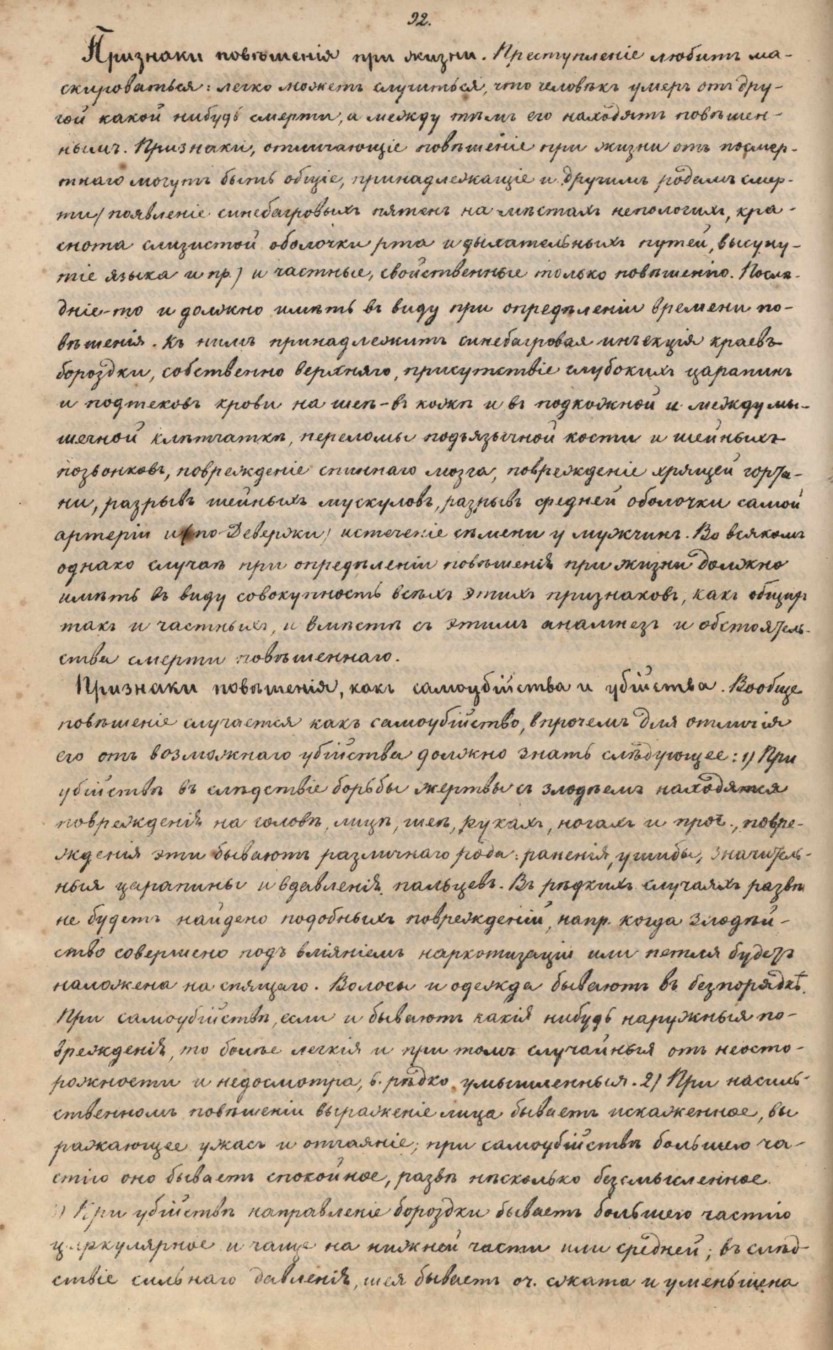 92.
Признаки повѣшенія при жизни. Преступленіе любитъ ма-
скироваться: легко можетъ случиться, что человѣкъ умеръ отъ дру-
гой какой нибудь смерти, а между тѣмъ его находятъ повѣшен-
нымъ. Признаки, отличающіе повѣшеніе при жизни отъ посмер-
тнаго могутъ быть общіе, принадлежащіе и другимъ родамъ смер-
ти /появленіе синебагровыхъ пятенъ на мѣстахъ непологихъ, кра-
снота слизистой оболочки рта и дыхательныхъ путей, высуну-
тіе языка и пр) и частные, свойственные только повѣшенію. Послѣ-
дніе-то и должно имѣть въ виду при опредѣленіи времени по-
вѣшенія. Къ нимъ принадлежитъ синебагровая инъекція краевъ
бороздки, собственно верхняго, присутствіе глубокихъ царапинъ
и подтековъ крови на шеѣ - въ кожѣ и въ подкожной и междумы-
шечной клѣтчаткѣ, переломы подъязычной кости и шейныхъ
позвонковъ, поврежденіе спиннаго мозга, поврежденіе хрящей горта-
ни, разрывъ шейныхъ мускуловъ, разрывъ средней оболочки самой
артеріи и /по Девержи/ истеченіе сѣмени у мужчинъ. Во всякомъ
однако случаѣ при опредѣленіи повѣшенія при жизни должно
имѣть въ виду совокупность всѣхъ этихъ признаковъ, какъ общихъ
такъ и частныхъ, и вмѣстѣ съ этимъ анамнезъ и обстоятель-
ства смерти повѣшеннаго.
Признаки повѣшенія, какъ самоубійства и убійства. Вообще
повѣшеніе случается какъ самоубійство, впрочемъ для отличія
его отъ возможнаго убійства должно знать слѣдующее: 1) При
убійствѣ въ слѣдствіе борьбы жертвы съ злодѣемъ находятся
поврежденія на головѣ, лицѣ, шеѣ, рукахъ, ногахъ и проч., повре-
жденія эти бываютъ различнаго рода: раненія, ушибы, значитель-
ныя царапины и вдавленія пальцевъ. Въ рѣдкихъ случаяхъ развѣ
не будетъ найдено подобныхъ поврежденій, напр. когда злодѣй-
ство совершено подъ вліяніемъ наркотизаціи или петля будетъ
наложена на спящаго. Волосы и одежда бываютъ въ безпорядкѣ.
При самоубійствѣ, если и бываютъ какія нибудь наружныя по-
врежденія, то болѣе легкія и при томъ случайныя отъ неосто-
рожности и недосмотра, б. рѣдко умышленныя. 2) При насиль-
ственномъ повѣшеніи выраженіе лица бываетъ искаженное, вы
ражающее ужасъ и отчаяніе; при самоубійствѣ большею ча-
стію оно бываетъ спокойное, развѣ нѣсколько безсмысленное.
) При убійствѣ направленіе бороздки бываетъ большею частію
циркулярное и чаще на нижней части или средней; въ слѣд-
ствіе сильнаго давленія, шея бываетъ оч. сжата и уменьшена